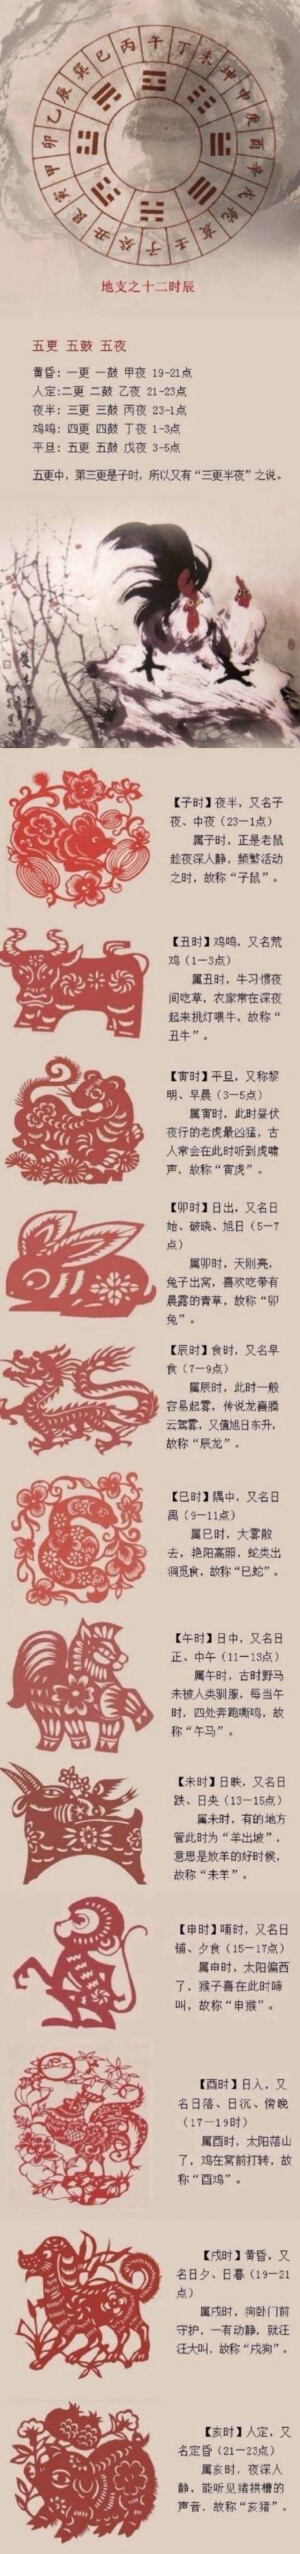 午
丁
未
坤
申
庚
酉
辛
戌
乾
亥
壬
子
癸
丑
艮
寅
甲
卯
乙
辰
巽
巳
丙
地支之十二时辰
五更 五鼓 五夜
黄昏: 一更 一鼓 甲夜 19-21点
人定:二更 二鼓 乙夜 21-23点
夜半: 三更 三鼓 丙夜 23-1点
鸡鸣: 四更 四鼓 丁夜 1-3点
平旦: 五更 五鼓 戊夜 3-5点
五更中，第三更是子时，所以又有“三更半夜”之说。
【子时】夜半，又名子
夜、中夜（23—1点）
属子时，正是老鼠
趁夜深人静，频繁活动
之时，故称“子鼠”。
【丑时】鸡鸣，又名荒
鸡（1—3点）
属丑时，牛习惯夜
间吃草，农家常在深夜
起来挑灯喂牛，故称“
丑牛”。
【寅时】平旦，又称黎
明、早晨（3—5点）
属寅时，此时昼伏
夜行的老虎最凶猛，古
人常会在此时听到虎啸
声，故称“寅虎”。
【卯时】日出，又名日
始、破晓、旭日（5—7
点）
属卯时，天刚亮，
兔子出窝，喜欢吃带有
晨露的青草，故称“卯
兔”。
【辰时】食时，又名早
食（7—9点）
属辰时，此时一般
容易起雾，传说龙喜腾
云驾雾，又值旭日东升，
故称“辰龙”。
【巳时】隅中，又名日
禺（9—11点）
属巳时，大雾散
去，艳阳高照，蛇类出
洞觅食，故称“巳蛇”。
【午时】日中，又名日
正、中午（11—13点）
属午时，古时野马
未被人类驯服，每当午
时，四处奔跑嘶鸣，故
称“午马”。
【未时】日昳，又名日
跌、日央（13—15点）
属未时，有的地方
管此时为“羊出坡”，
意思是放羊的好时候，
故称“未羊”。
【申时】哺时，又名日
铺、夕食（15—17点）
属申时，太阳偏西
了，猴子喜在此时啼
叫，故称“申猴”。
【酉时】日入，又
名日落、日沉、傍晚
（17—19时）
属酉时，太阳落山
了，鸡在窝前打转，故
称“酉鸡”。
【戌时】黄昏，又
名日夕、日暮（19—21
点）
属戌时，狗卧门前
守护，一有动静，就汪
汪大叫，故称“戌狗”。
【亥时】人定，又
名定昏（21—23点）
属亥时，夜深人
静，能听见猪拱槽的
声音，故称“亥猪”。